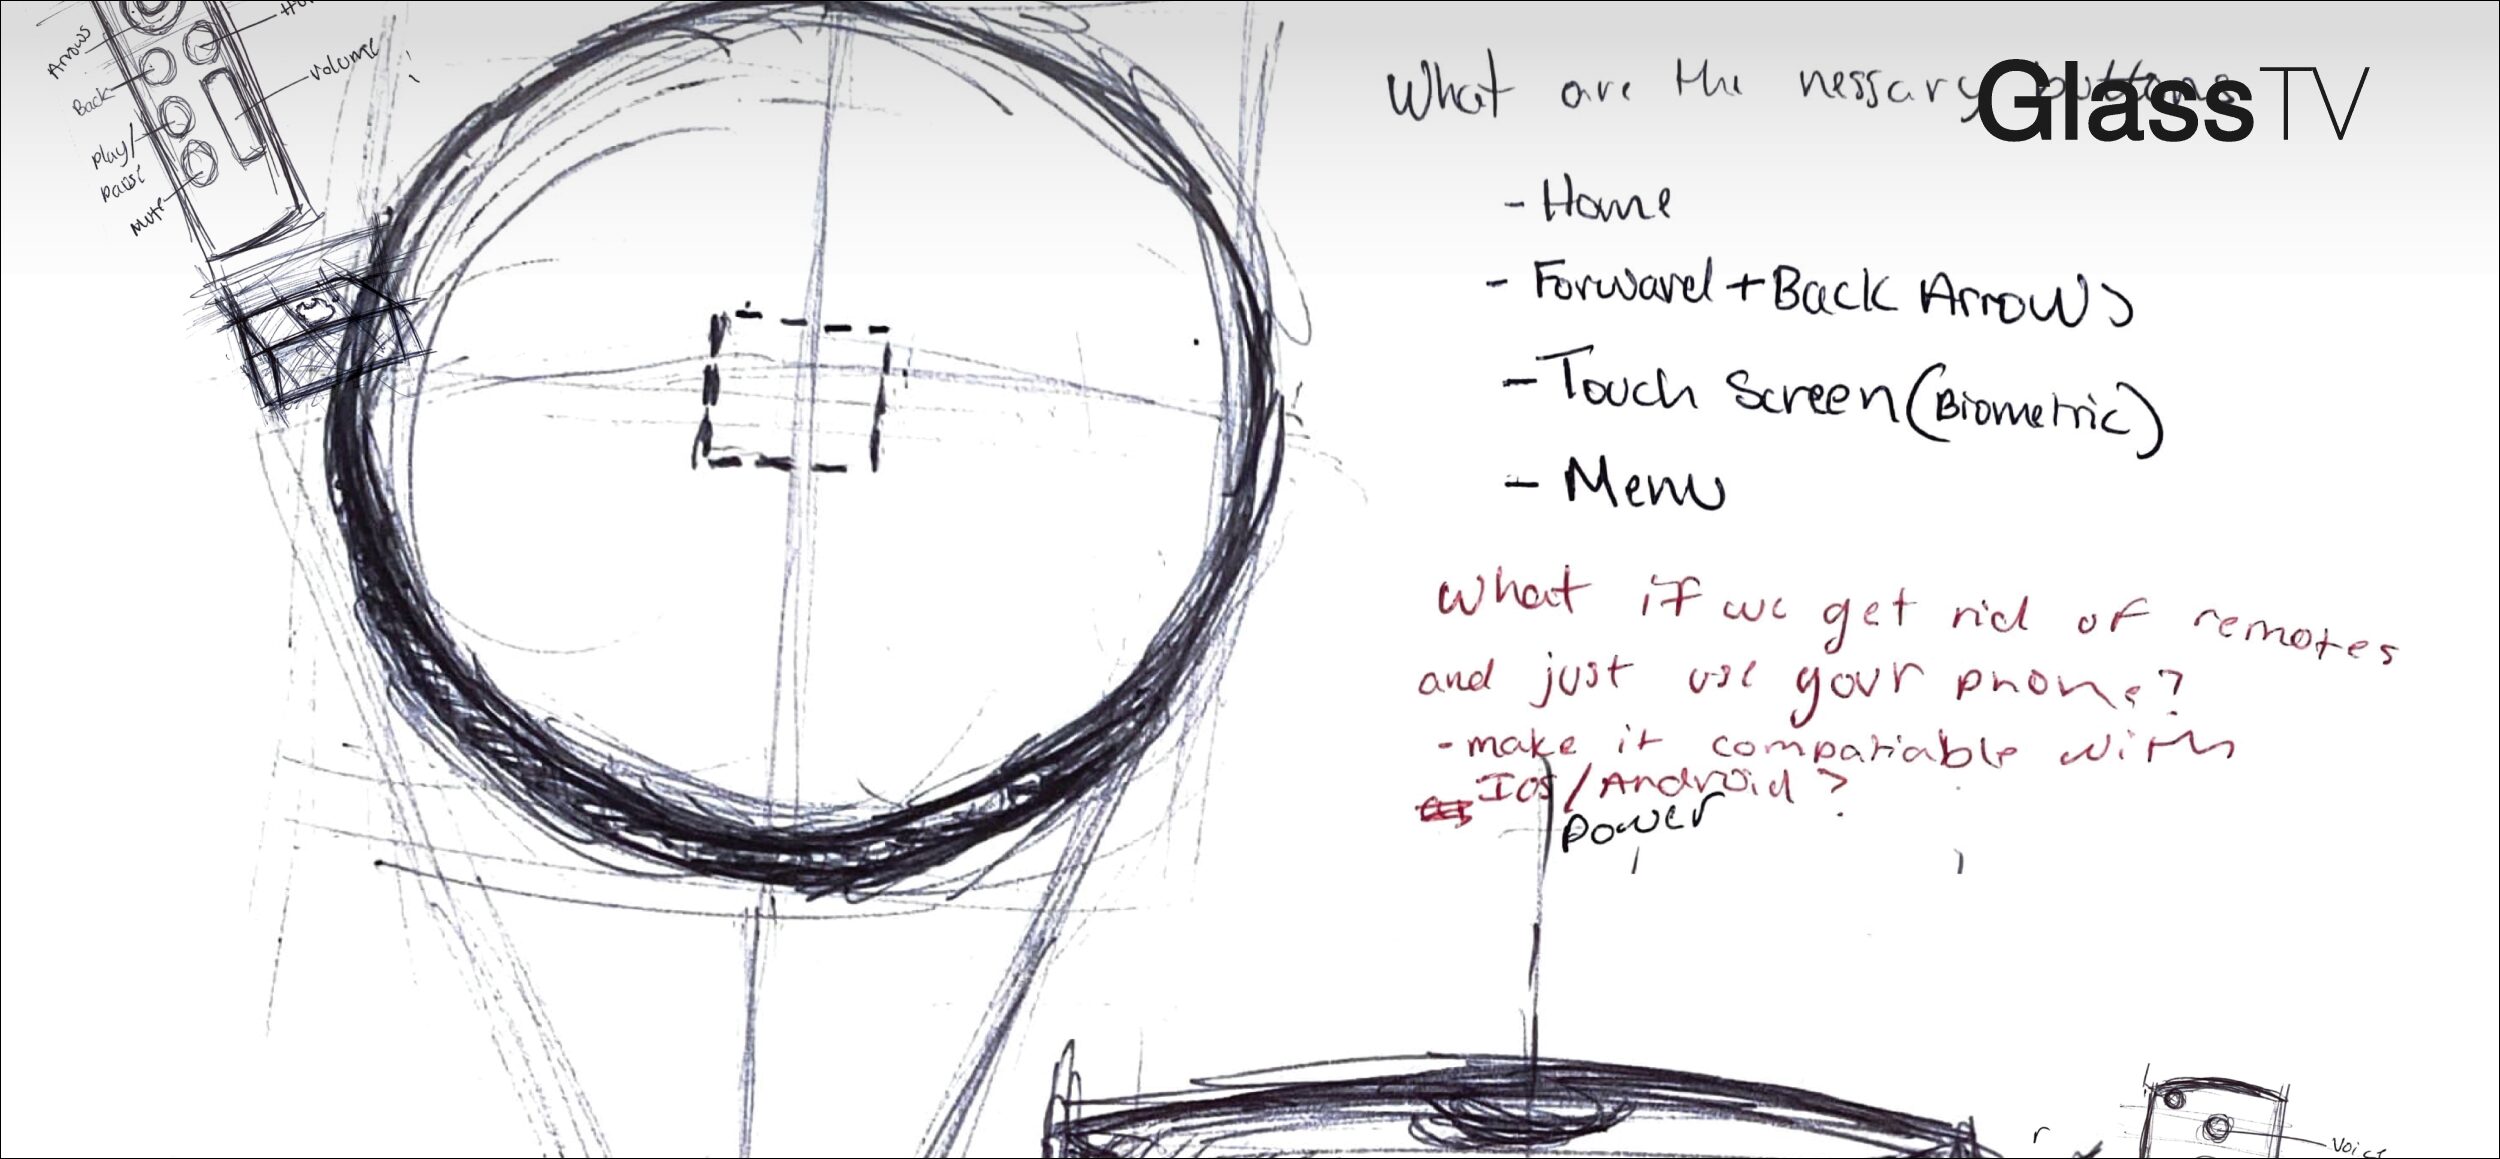 Arrows
Back
Play/
Pause
Mute
volume
What are the nessary buttons
GlassTV
- Home
- Forward + Back Arrows
- Touch Screen (Biometric)
- Menu
What if we get rid of remotes
and just use your phone?
- make it compatiable with
Ios/Android?
Power
Voice